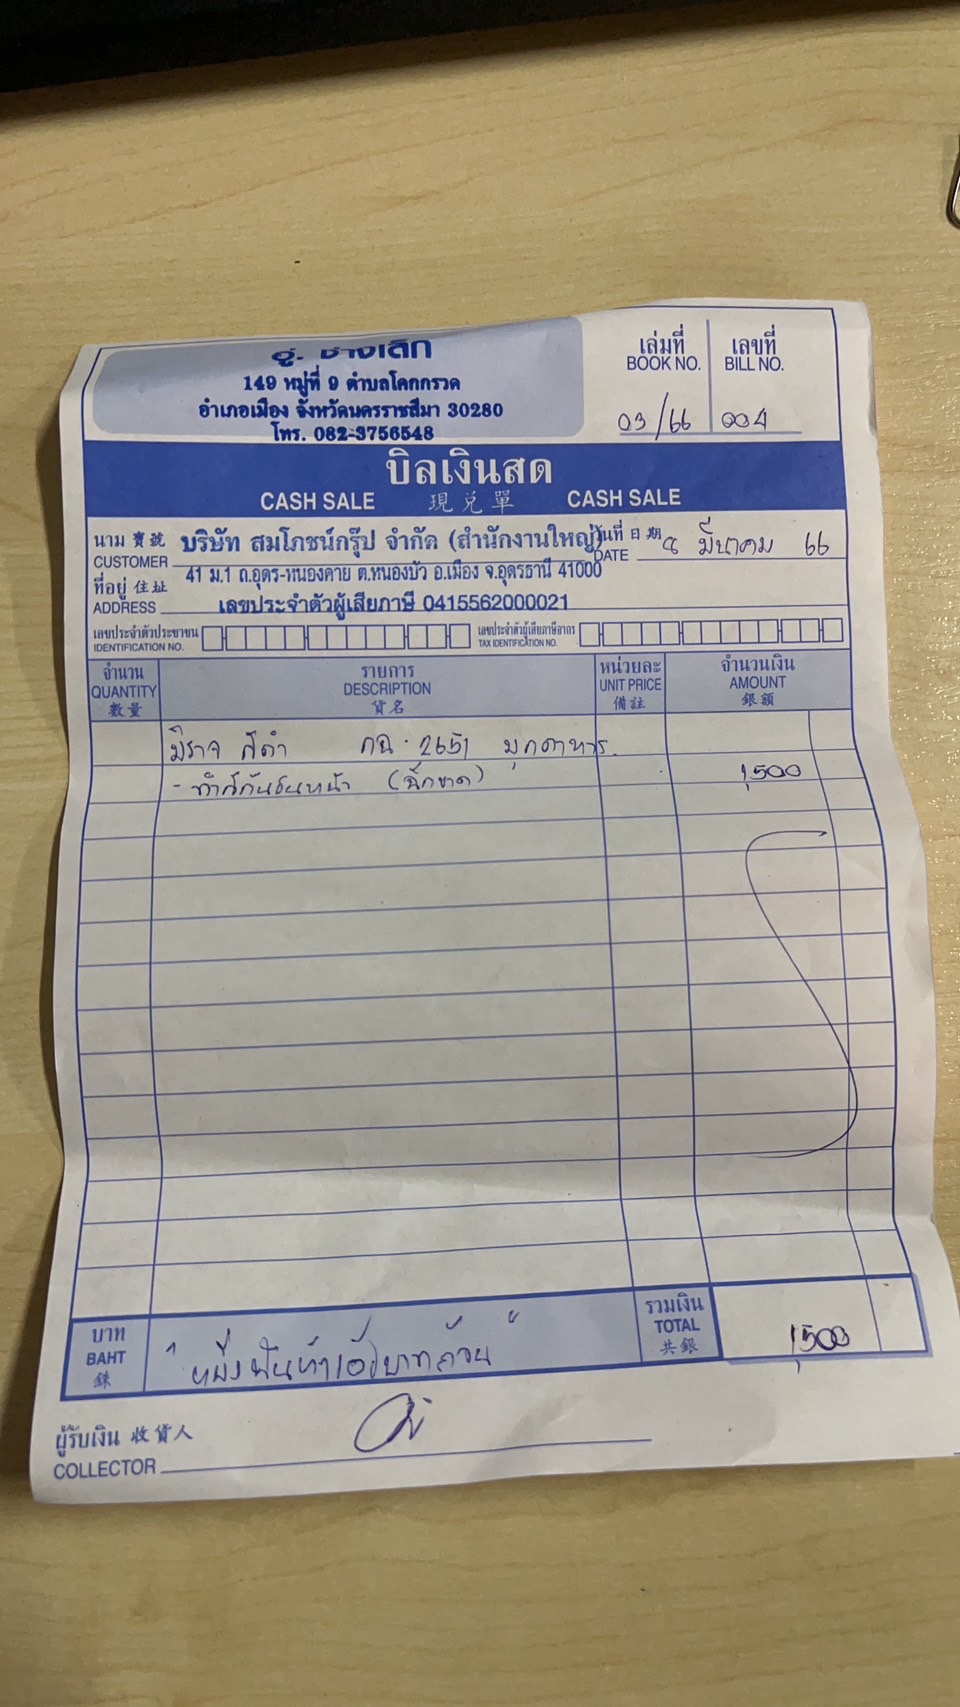 อู่. ช่างเล็ก
149 หมู่ที่ 9 ตำบลโคกกรวด
อำเภอเมือง จังหวัดนครราชสีมา 30280
โทร. 082-3756548
เล่มที่ เลขที่
BOOK NO. BILL NO.
03/66 004
บิลเงินสด
CASH SALE 現兌單 CASH SALE
นาม寶號 บริษัท สมโภชน์กรุ๊ป จำกัด (สำนักงานใหญ่) วันที่ 日期 8 มีนาคม 66
CUSTOMER DATE
ที่อยู่ 住址 41 ม.1 ถ.อุดร-หนองคาย ต.หนองบัว อ.เมือง จ.อุดรธานี 41000
ADDRESS เลขประจำตัวผู้เสียภาษี 0415562000021
เลขประจำตัวประชาชน เลขประจำตัวผู้เสียภาษีอากร
IDENTIFICATION NO. TAX IDENTIFICATION NO.
จำนวน รายการ หน่วยละ จำนวนเงิน
QUANTITY DESCRIPTION UNIT PRICE AMOUNT
數量 貨名 備註 銀額
มิราจ สีดำ กฉ. 2651 มุกดาหาร
- ทำสีกันชนหน้า (ฉีกขาด) 1,500
บาท รวมเงิน
BAHT "หนึ่งพันห้าร้อยบาทถ้วน" TOTAL 1,500
銖 共銀
ผู้รับเงิน 收貨人
COLLECTOR